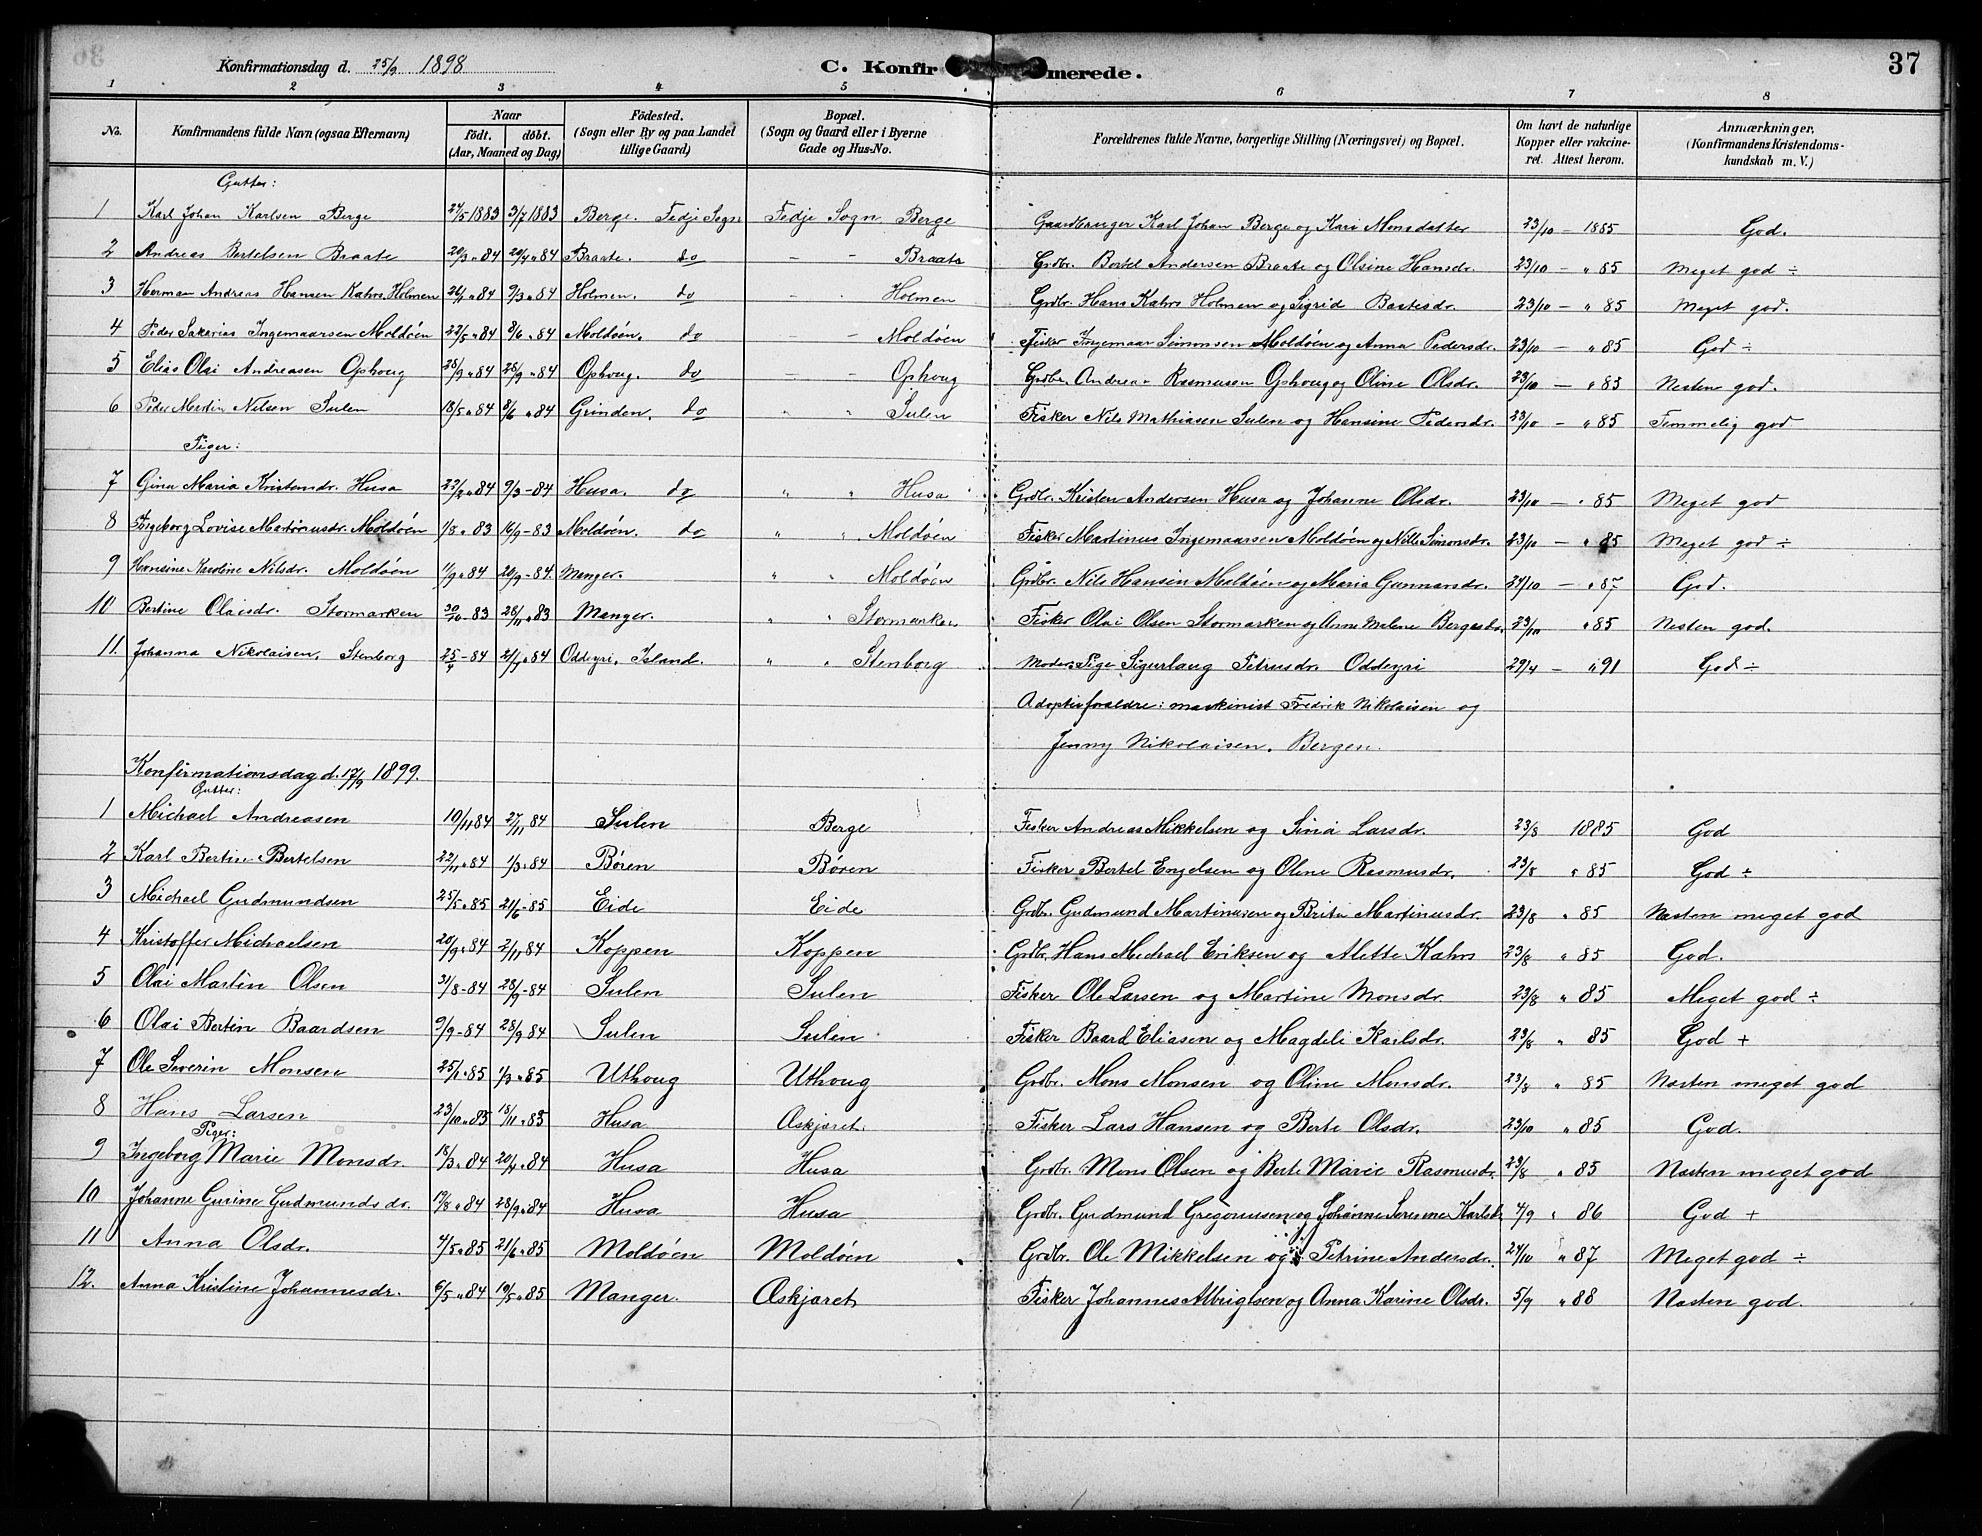 37
Konfirmationsdag d. 25/9 1898
C. Konfirmerede.
1 2 3 4 5 6 7 8
No. Konfirmandens fulde Navn (ogsaa Efternavn) Naar födt. döbt. (Aar, Maaned og Dag) Födested. (Sogn eller By og paa Landet tillige Gaard) Bopæl. (Sogn og Gaard eller i Byerne Gade og Hus-No. Forældrenes fulde Navne, borgerlige Stilling (Næringsvei) og Bopæl. Om havt de naturlige Kopper eller vakcineret. Attest herom. Anmærkninger. (Konfirmandens Kristendomskundskab m. V.)
Gutter:
1 Karl Johan Karlsen Berge 27/5 1883 3/7 1883 Berge. Fedje Sogn Fedje Sogn Berge Gaardbruger Karl Johan Berge og Kari Monsdatter 23/10 – 1885 God.
2 Andreas Bertelsen Braate 20/3 " 84 20/4 " 84 Braate. do – – Braate Grdbr. Bertel Andersen Braate og Olsine Hansdr. 23/10 – " 85 Meget god ÷
3 Herman Andreas Hansen Kahrs Holmen 26/1 " 84 9/3 " 84 Holmen. do – – Holmen Grdbr. Hans Kahrs Holmen og Sigrid Bastesdr. 23/10 – " 85 Meget god.
4 Peder Sakarias Ingemaarsen Moldöen 22/5 " 84 8/6 " 84 Moldöen. do – – Moldöen Fisker Ingemaar Simonsen Moldöen og Anna Pedersdr. 23/10 – " 85 God ÷
5 Elias Olai Andreasen Ophoug 28/9 " 84 Ophoug. do – – Ophoug Grdbr. Andreas Rasmusen Ophoug og Oline Olsdr. 23/10 – " 85 Nesten god.
6 Peder Martin Nilsen Sulen 18/5 " 84 8/6 " 84 Grinden. do " " Sulen Fisker Nils Mathiasen Sulen og Hansine Pedersdr. 23/10 – " 85 Temmelig god
Piger:
7 Gina Maria Kristensdr. Husa 22/2 " 84 9/3 – 84 Husa. do " " Husa Grdbr. Kristen Andersen Husa og Johanne Olsdr. 23/10 – " 85 Meget god
8 Ingeborg Lovise Martinusdr. Moldöen 1/8 " 83 16/9 – 83 Moldöen. do " " Moldöen Fisker Martinus Ingemaarsen Moldöen og Nille Simonsdr. 23/10 – " 85 Meget god ÷
9 Hansine Karoline Nilsdr. Moldöen 11/9 " 84 20/9 – 84. Manger. " " Moldöen Grdbr. Nils Hansen Moldöen og Maria Gunnarsdr. 24/10 – " 87 God.
10 Bertine Olaisdr. Stormarken 30/10 – 83 28/11 " 83 Manger. " " Stormarken Fisker Olai Olsen Stormarken og Anne Malene Bergesdr. 23/10 " 85 Nesten god.
11. Johanna Nikolaisen, Stenborg – 84 " 84 Oddeyri, Island. " " Stenborg Moder: Pige Sigurlaug Petrusdr. Oddeyri 29/4 – " 91 God ÷
Adoptivforældre: maskinist Fredrik Nikolaisen og
Jenny Nikolaisen. Bergen.
Konfirmationsdag d. 17/9 1899.
Gutter:
1 Michael Andreasen 10/11 84 27/11 84 Sulen Berge Fisker Andreas Mikkelsen og Sina Larsdr. 23/8 1885 God
2 Karl Bertin Bertelsen 22/11 " 84 1/3 " 84 Bören Bören Fisker Bertel Engelsen og Oline Rasmusdr. 23/8 " 85 God ÷
3 Michael Gudmundsen 25/5 " 85 21/6 – 85 Eide Eide Grdbr. Gudmund Martinusen og Brita Martinusdr. 23/8 " 85 Næsten meget god
4 Kristoffer Michaelsen 20/9 " 84 2/11 84 Koppen Koppen Grdbr. Hans Michael Eriksen og Alette Kahrs 23/8 " 85 God.
5 Olai Martin Olsen 31/8 – 84 28/9 – 84 Sulen Sulen Fisker Ole Larsen og Martine Monsdr. 23/8 " 85 Meget god ÷
6 Olai Bertin Baardsen 9/9 – 84 28/9 84 Sulen Sulen Fisker Baard Eliasen og Magdeli Karlsdr. 23/8 " 85 God +
7 Ole Severin Monsen 25/1 " 85 1/3 " 85 Uthoug Uthoug Grdbr. Mons Monsen og Oline Monsdr. 23/8 " 85 Næsten meget god
8 Hans Larsen 23/10 " 83 18/11 " 83 Husa Askjæret. Fisker Lars Hansen og Berte Olsdr. 23/10 " 85 God.
Piger:
9 Ingeborg Marie Monsdr. 18/3 " 84 20/4 " 84 Husa Husa Grdbr. Mons Olsen og Berte Marie Rasmusdr. 23/8 " 85 Næsten meget god
10 Johanne Gurine Gudmundsdr. 19/8 " 84 28/9 " 84 Husa Husa Grdbr. Gudmund Gregoriusen og Johanne Serine Karlsdr. 4/9 " 86 God +
11 Anna Olsdr. 4/5 " 85 21/6 " 85 Moldöen Moldöen Grdbr. Ole Mikkelsen og Petrine Andersdr. 24/10 " 87 Meget god ÷
12. Anna Kristine Johannesdr. 6/5 " 84 19/5 " 85 Manger. Askjæret Fisker Johannes Albrigtsen og Anna Karine Olsdr. 5/9 " 88 Næsten god.